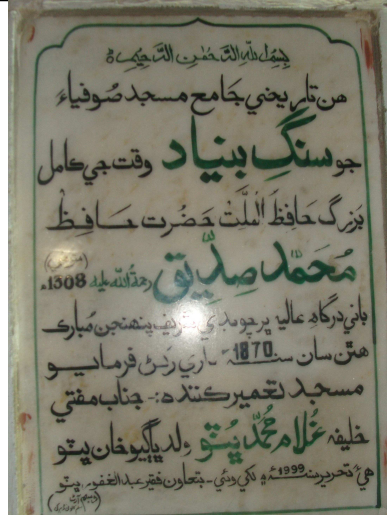 بِسْمِ اللهِ الرَّحْمٰنِ الرَّحِيْمِ
هن تاريخي جامع مسجد صوفياءَ
جو سنگِ بنياد وقت جي ڪامل
بزرگ حافظ الملّت حضرت حافظ
محمد صِدّيق رحمة الله عليه 1308ھ
باني درگاهِ عاليه ڀرچونڊي شريف پنهنجن مُبارڪ
هٿن سان سنه 1870ع ۾ رکڻ فرمايو
مسجد تعمير ڪننده:- جناب مفتي
خليفه غُلام محمّد ڀُٽو ولد ڀاڳيو خان ڀٽو
هيءَ تحرير سنه 1999ع ۾ لکي وئي - بتعاون فقير عبدالغفور ڀٽو